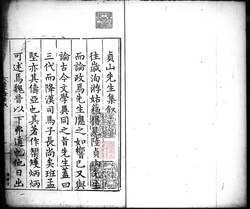 貞山先生集敘
往歲泊將姑蘇獲見陸貞山先生
而論政焉先生應之如響已又與
論古今文學異同之旨先生蓋曰
三代而降漢司馬子長尚矣班孟
堅亦其儔亞也其著作閎煒炳炳
可述焉魏晉以下弗逮也他日出